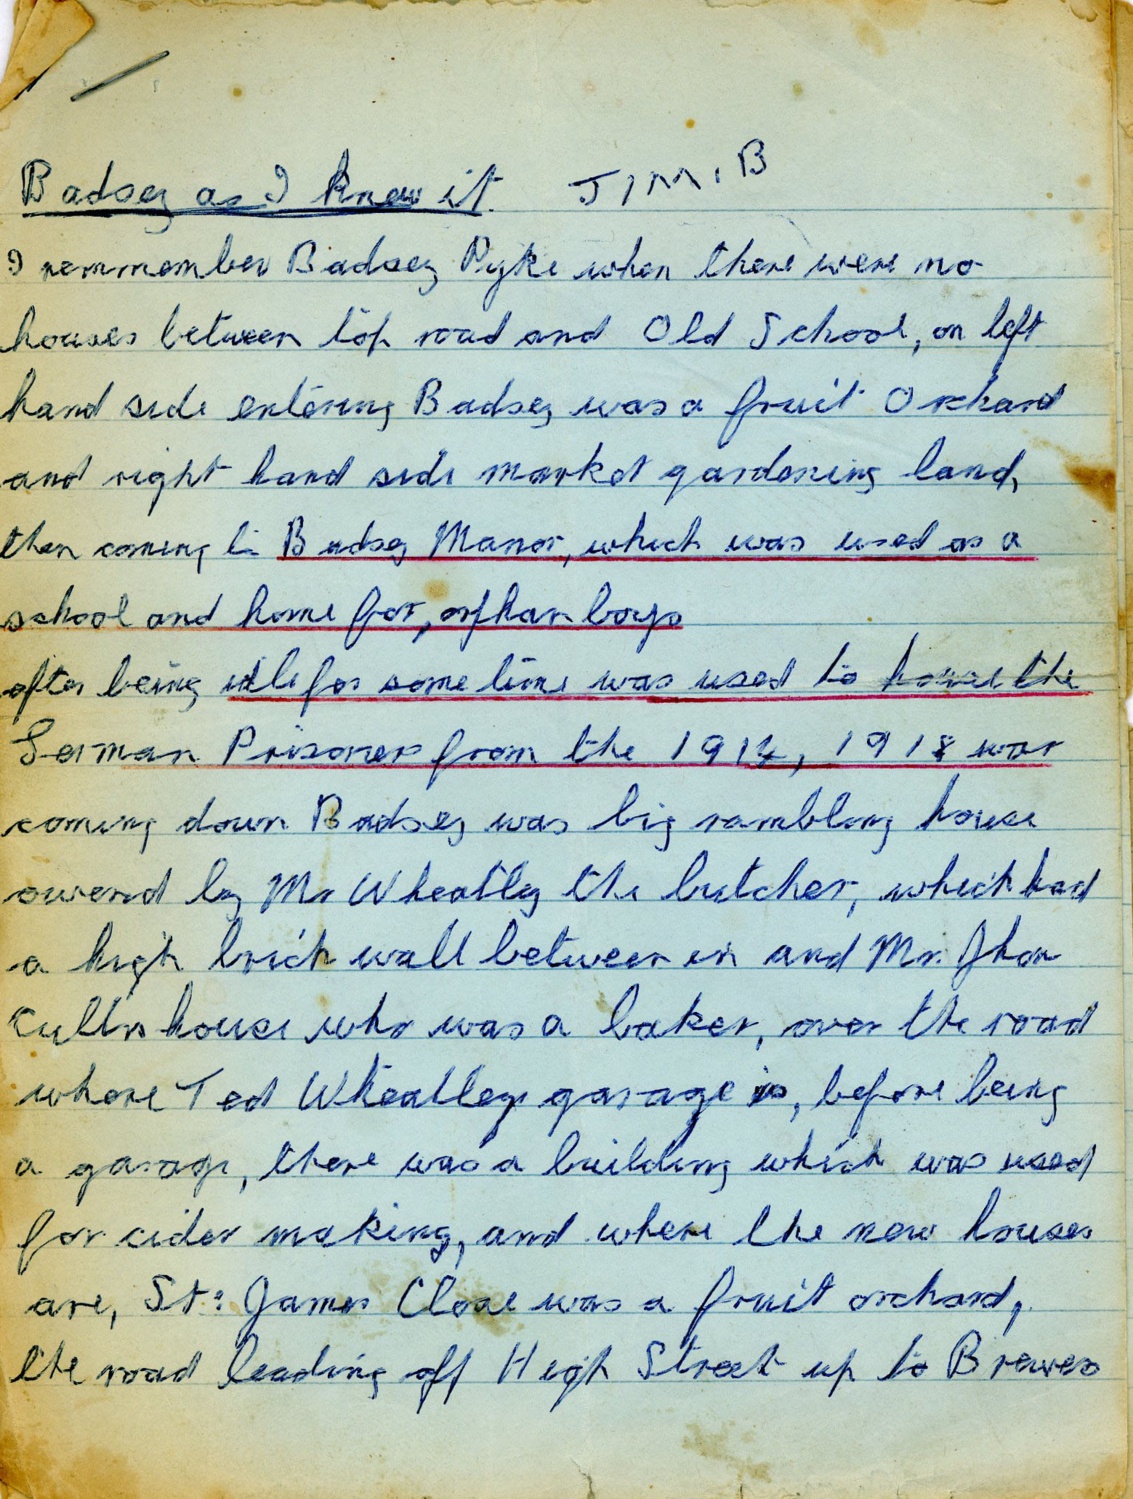 Badsey as I knew it. JIM. B
I remmember Badsey Pyke when there were no
houses between top road and Old School, on left
hand side entering Badsey was a fruit Orchard
and right hand side market gardening land,
then coming to Badsey Manor, which was used as a
school and home for, orphan boys
after being idle for some time was used to house the
German Prisoners from the 1914, 1918 war
coming down Badsey was big rambling house
owend by Mr Wheatley the butcher, which had
a high brick wall between in and Mr. Jhon
house who was a baker, over the road
where Ted Wheatleys garage is, before being
a garage, there was a building which was used
for cider making, and where the new houses
are, St: James Close was a fruit orchard,
the road leading off High Street up to Brewers